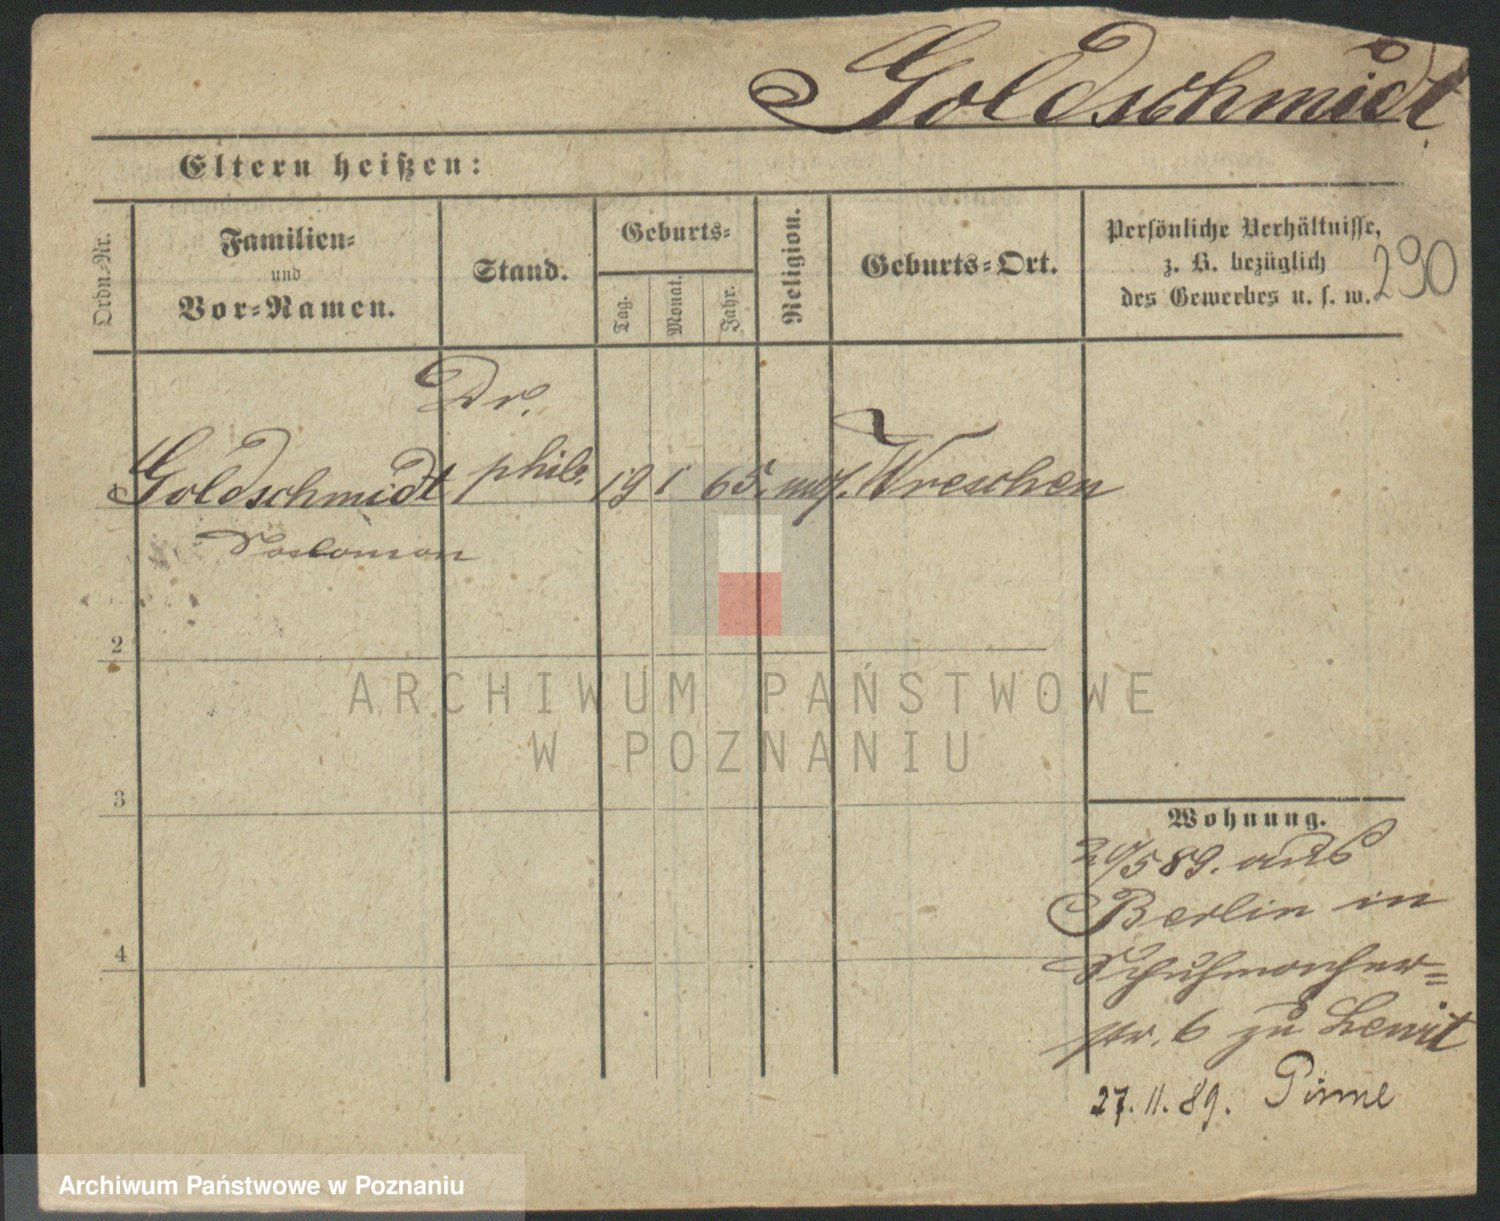 Goldschmidt
Eltern heißen:
Ordn.-Nr.
Familien-
und
Vor-Namen.
Stand.
Geburts-
Tag.
Monat.
Jahr.
Religion.
Geburts-Ort.
Persönliche Verhältnisse,
z. B. bezüglich
des Gewerbes u. s. w.
290
Dr.
Goldschmidt phil. 19 1 65. mos. Wreschen
Salomon
2
3
4
Wohnung.
29/5 89. aus
Berlin in
Schuhmacher-
str. 6 zu Lewit
27. 11. 89. Pinne
ARCHIWUM PAŃSTWOWE
W POZNANIU
Archiwum Państwowe w Poznaniu